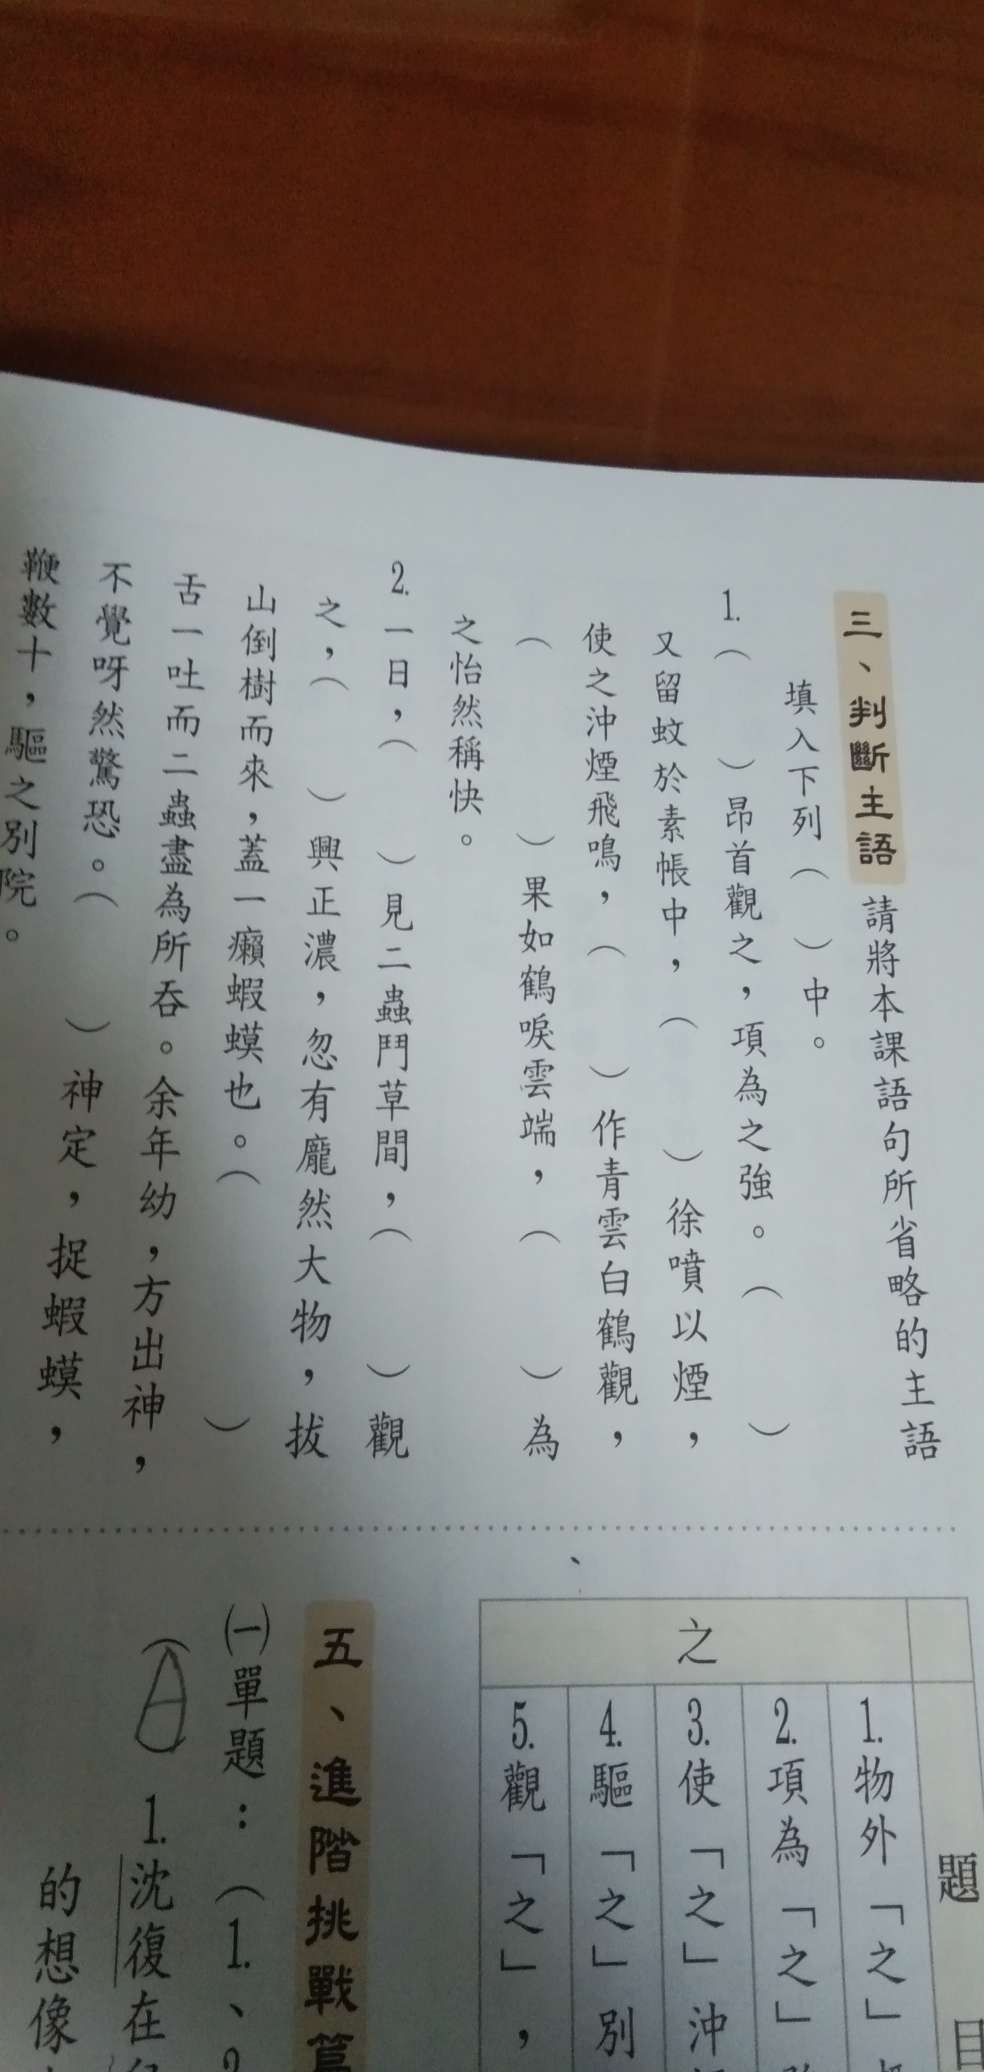 三、判斷主語 請將本課語句所省略的主語
填入下列（　）中。
1.（　　）昂首觀之，項為之強。（　　）
又留蚊於素帳中，（　　）徐噴以煙，
使之沖煙飛鳴，（　　）作青雲白鶴觀，
（　　）果如鶴唳雲端，（　　）為
之怡然稱快。
2.一日，（　　）見二蟲鬥草間，（　　）觀
之，（　　）興正濃，忽有龐然大物，拔
山倒樹而來，蓋一癩蝦蟆也。（　　）
舌一吐而二蟲盡為所吞。余年幼，方出神，
不覺呀然驚恐。（　　）神定，捉蝦蟆，
鞭數十，驅之別院。
題目
之
1.物外「之」
2.項為「之」
3.使「之」沖
4.驅「之」別
5.觀「之」，
五、進階挑戰篇
(一)單題：（1.、
（A）1.沈復在
的想像